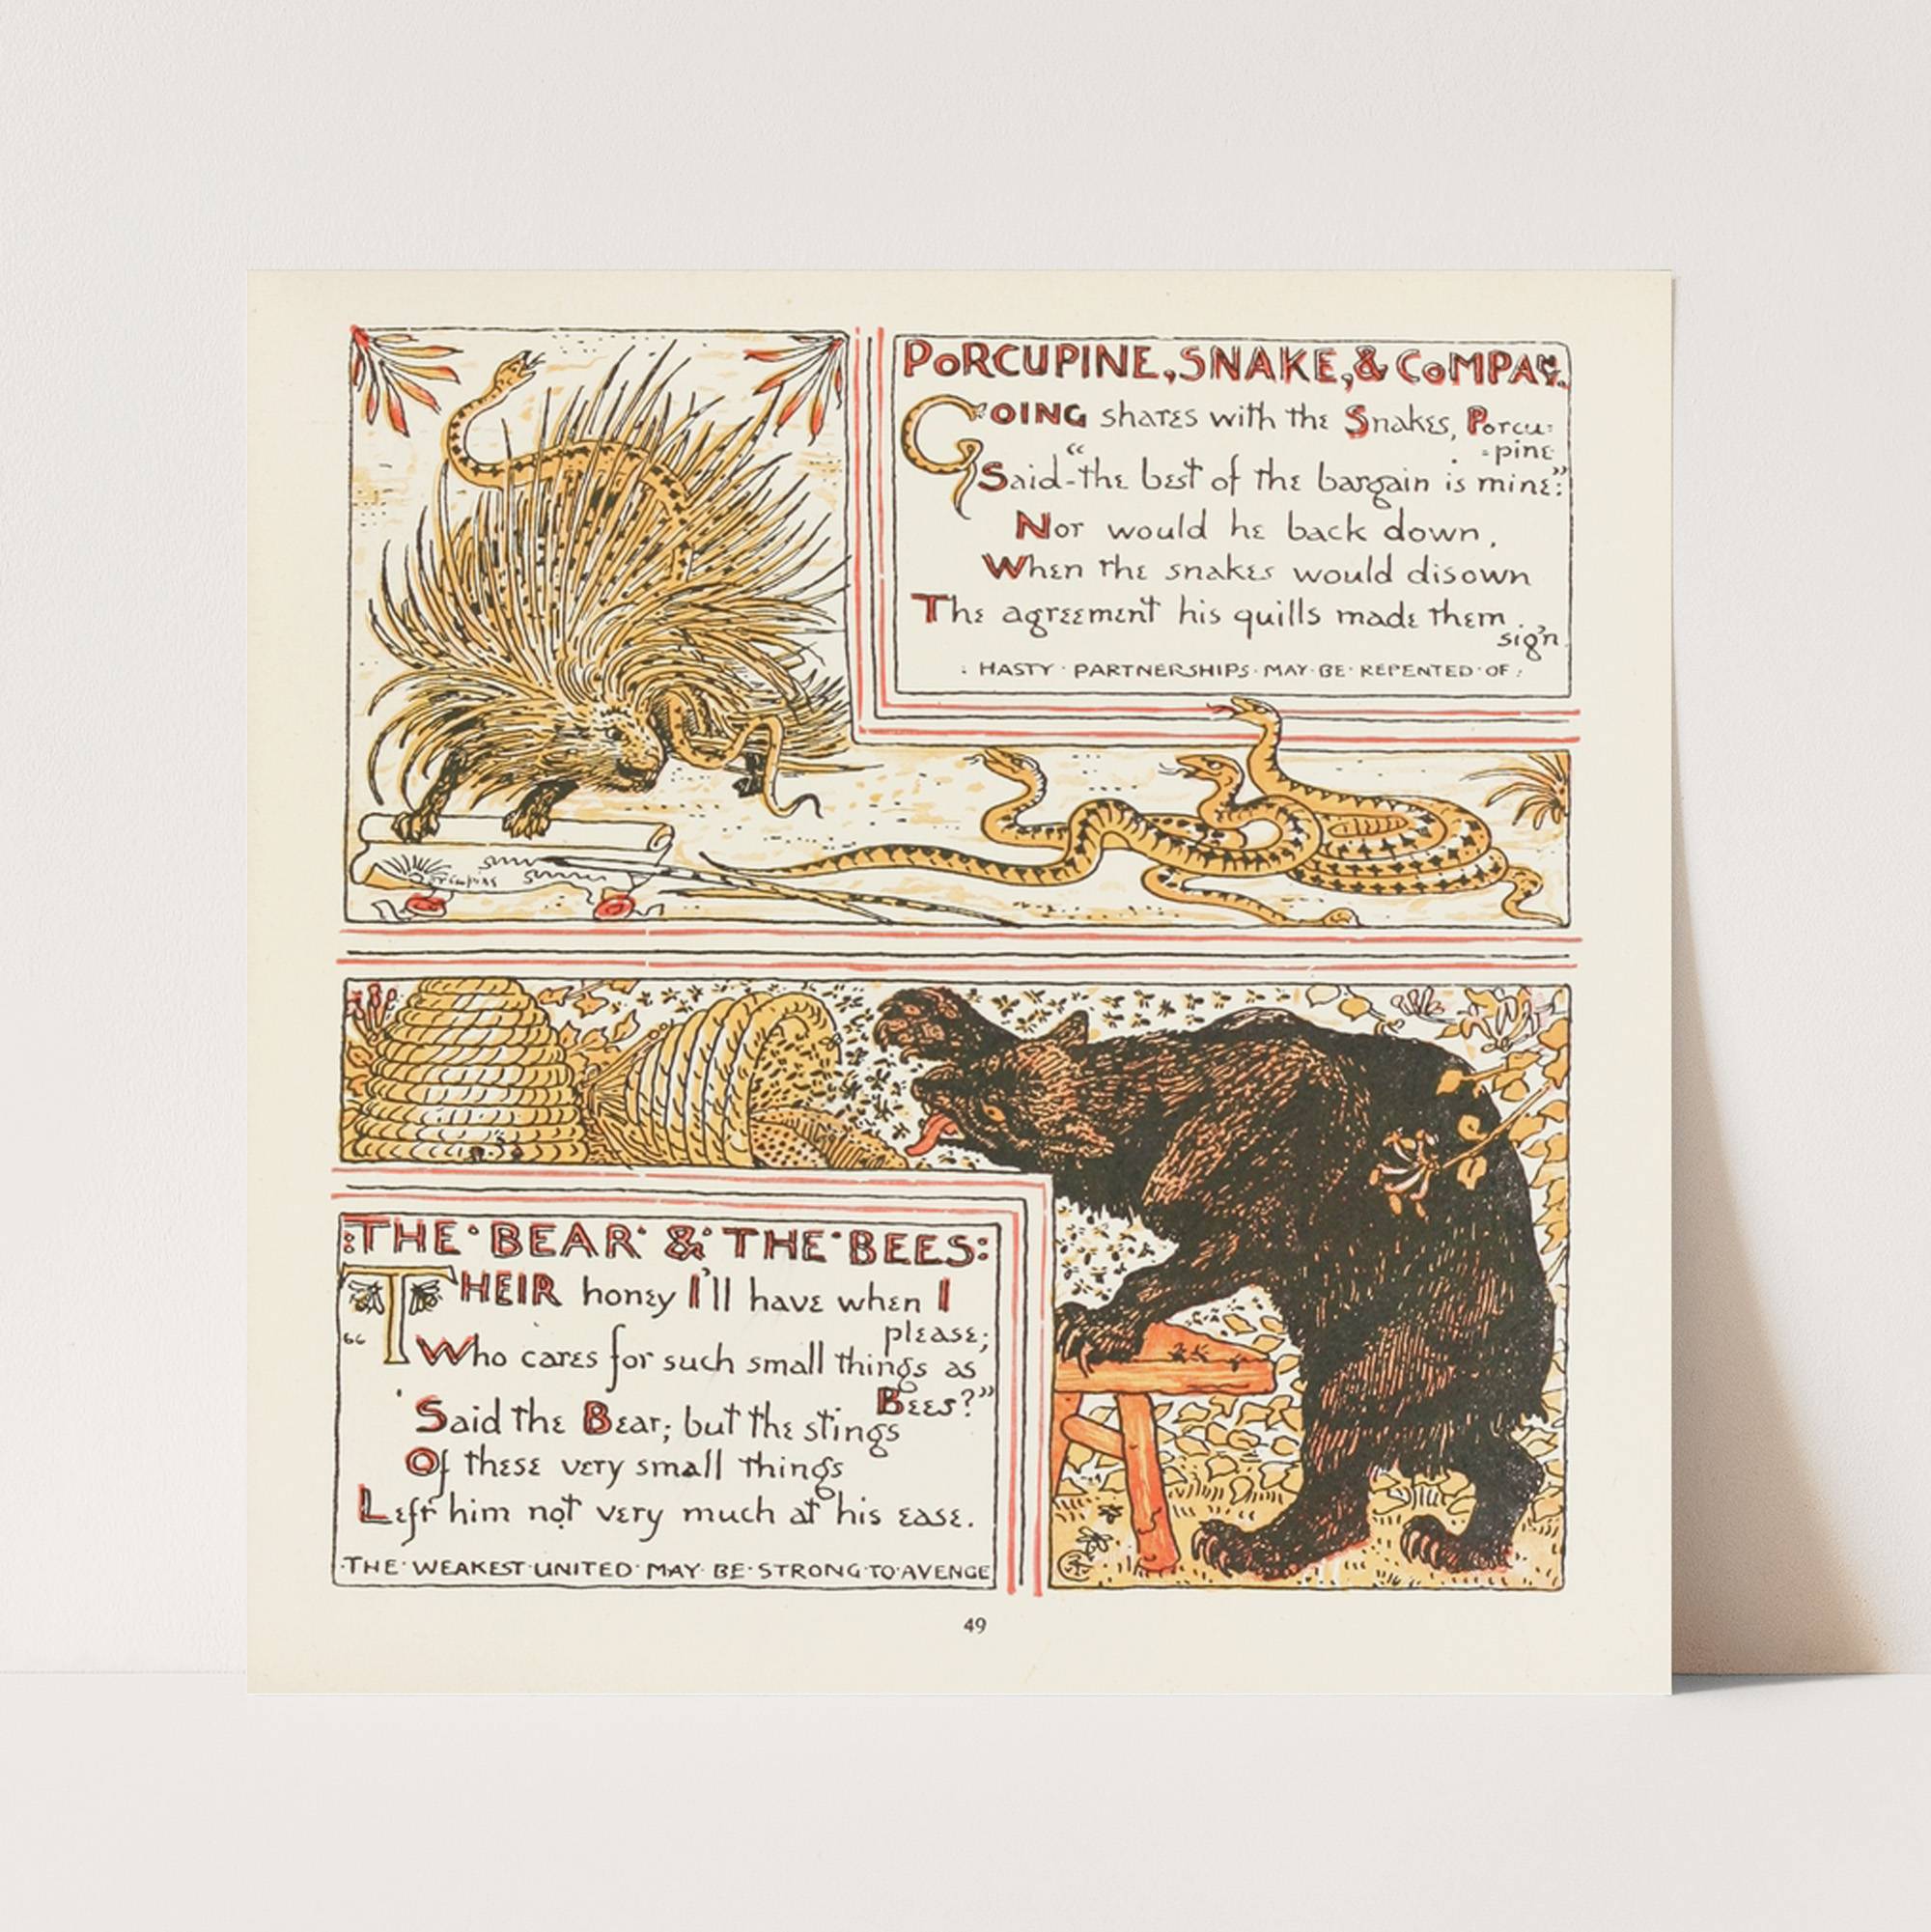 PORCUPINE, SNAKE, & COMPAY.
GOING shares with the Snakes, Porcu=
=pine
Said-"the best of the bargain is mine:"
Nor would he back down,
When the snakes would disown
The agreement his quills made them
sign.
: HASTY · PARTNERSHIPS · MAY · BE · REPENTED · OF :
Porcupine
:THE·BEAR·&·THE·BEES:
"THEIR honey I'll have when I
please;
Who cares for such small things as
Bees?"
Said the Bear; but the stings
Of these very small things
Left him not very much at his ease.
·THE·WEAKEST·UNITED·MAY·BE·STRONG·TO·AVENGE
49